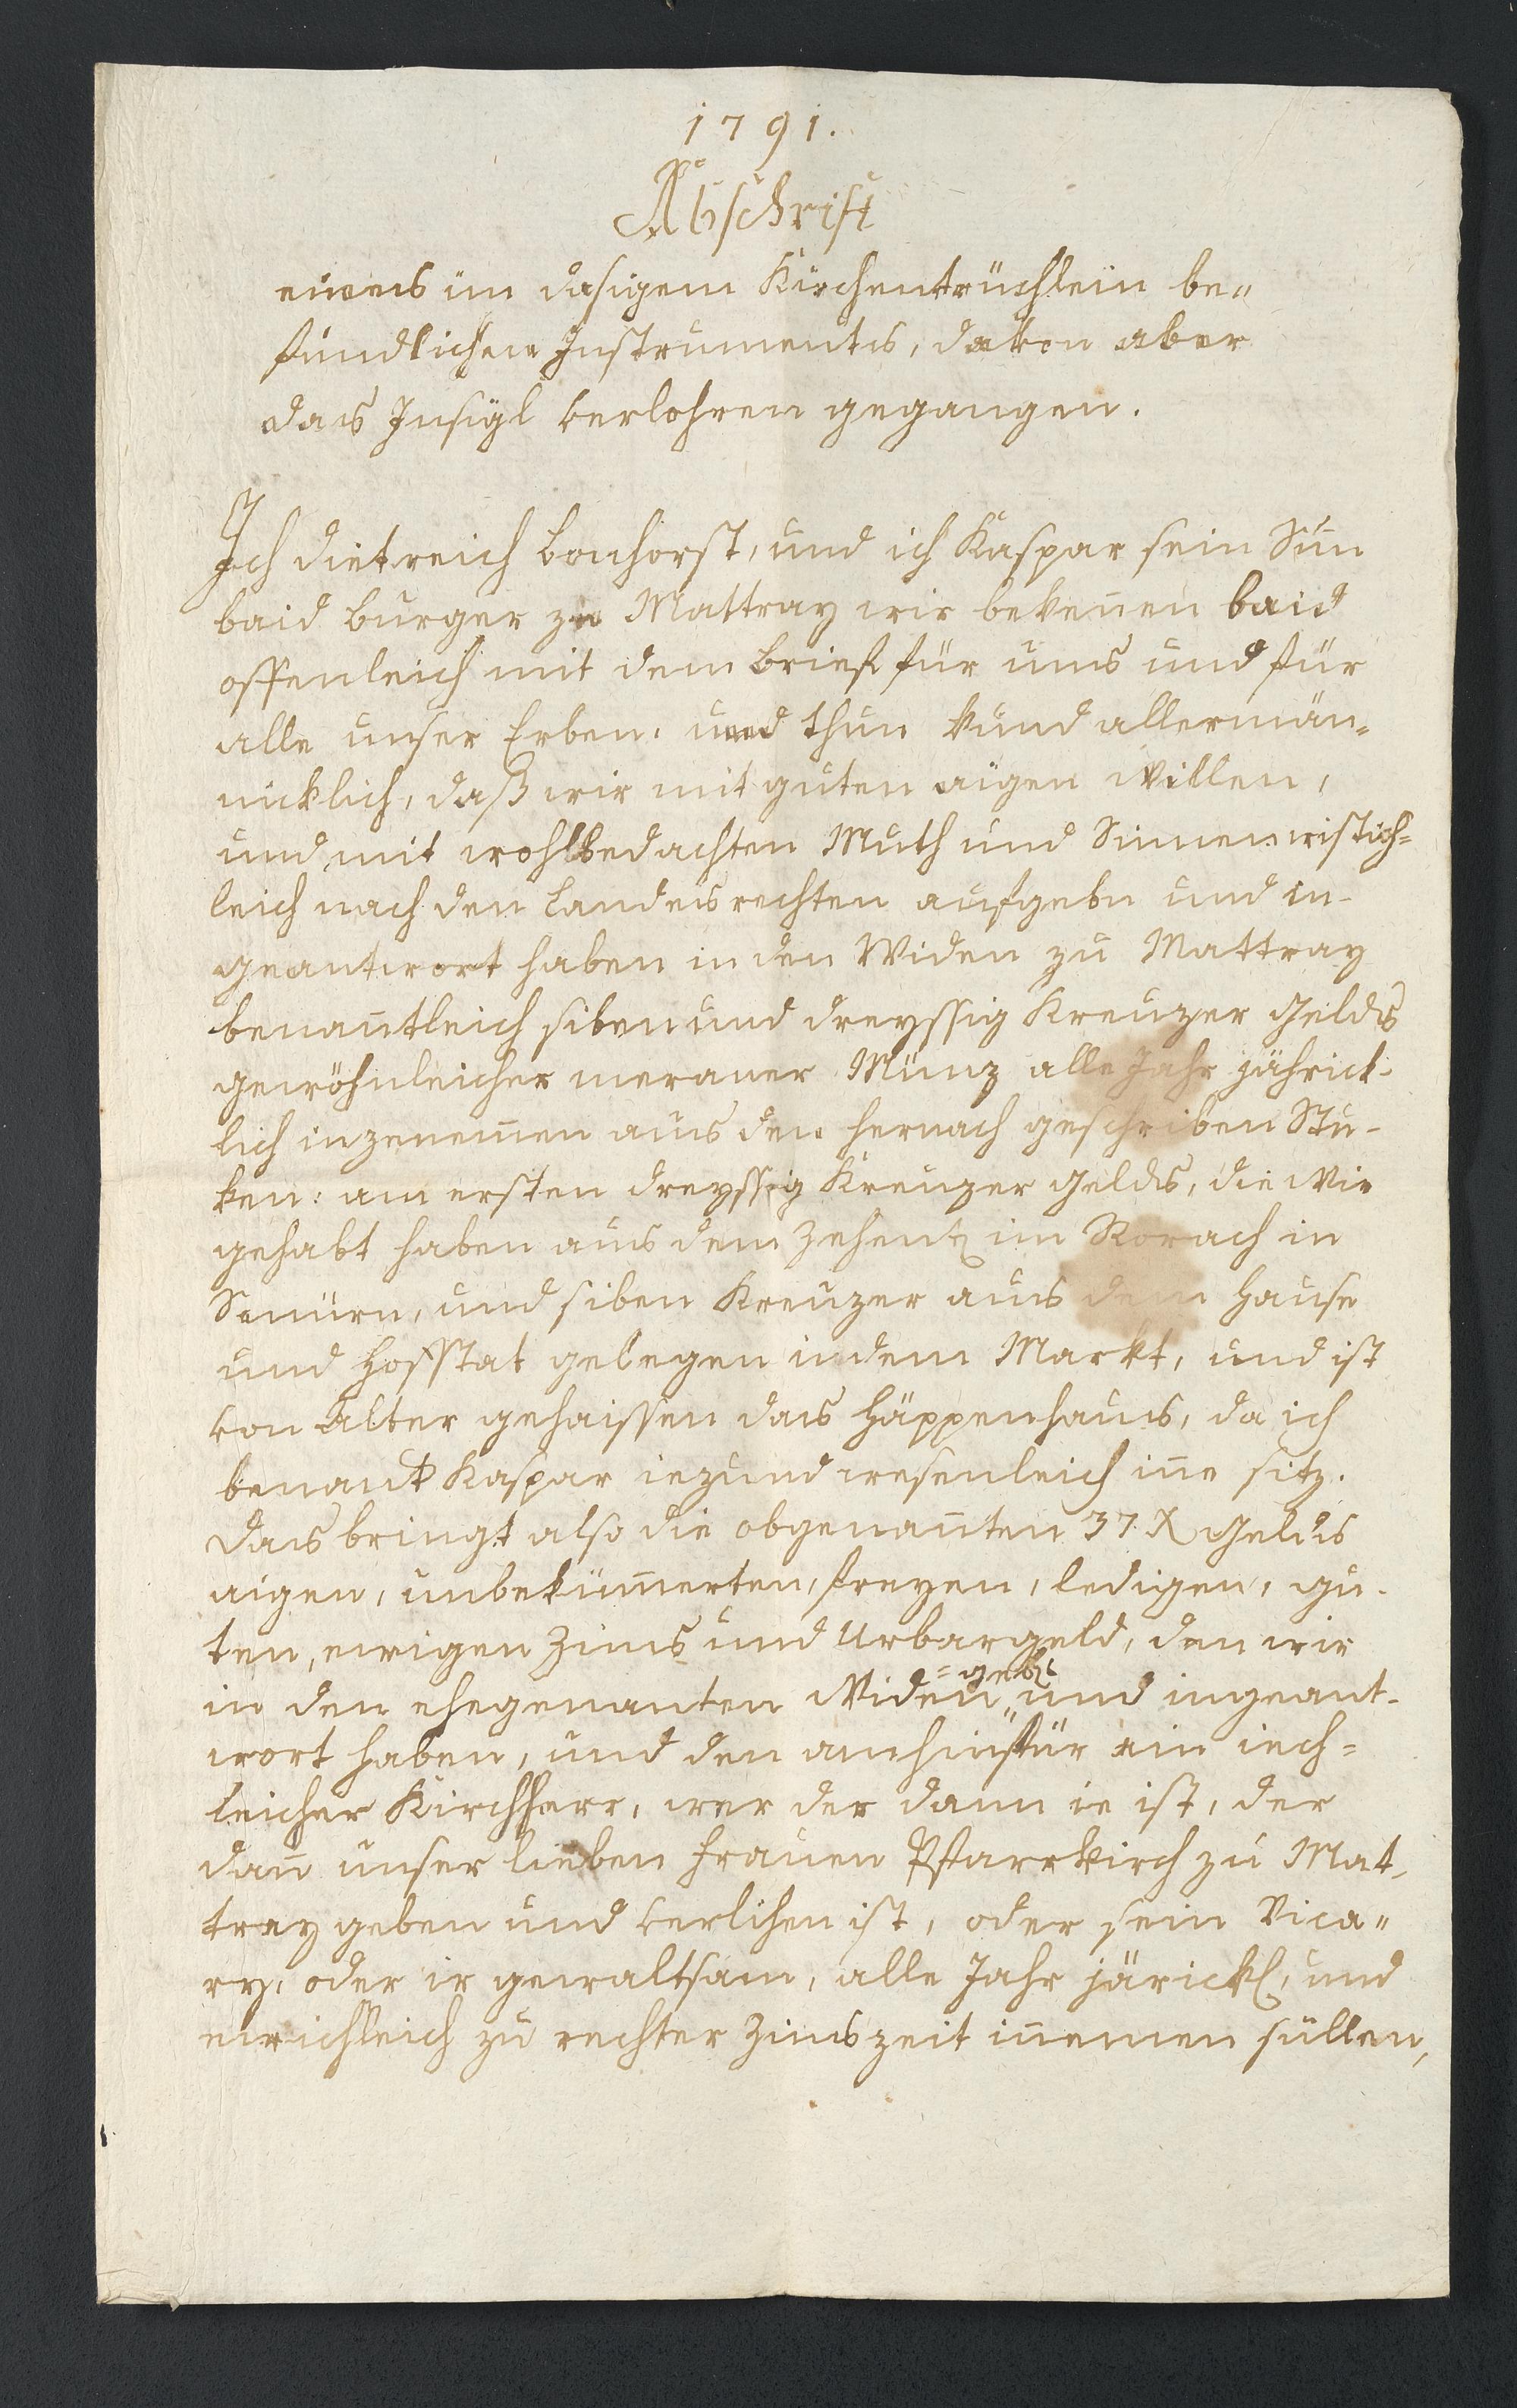 1791.
Abschrift
eines im dasigem Kirchentrüchlein be„
findlichen Instruments, davon aber
das Insigl verlohren gegangen.
Ich dietreich bonhorst, und ich Kaspar sein Sun
baid burger zu Mattray wir bekeñen baid
offenleich mit dem brief für uns und für
alle unser Erben, und thun kund allermän¬
nicklich, daß wir mit guten aigen Willen,
und mit wohlbedachten Muth und Sinnen wistich=
leich nach den Landesrechten aufgebn und in-
geantwort haben in den Widen zu Mattray
benañtleich siben und dreyssig Kreuzer Gelds
gewöhnleicher meraner Münz alle Jahr jährick-
lich inzenemen aus den hernach geschriben Stu-
ken: am ersten dreyssig Kreuzer Gelds, die Wir
gehabt haben aus dem Zehent im Rorach in
und siben Kreuzer aus dem Hause
und Hofstat gelegen in dem Markt, und ist
von Alter gehaissen das Häppenhaus, da ich
benant Kaspar iezund wesenleich iñe sitz.
Das bringt also die obgenañten 37. X Gelds
aigen, unbekümerten, freyen, ledigen, gu-
ten, ewigen Zins und Urbargeld, den wir
in den ehegenanten Widen =gebn und ingeant-
wort haben, und den anhinfür ein iech=
leicher Kirchherr, wer der dann ie ist, der
dañ unser lieben Frauen Pfarrkirch zu Mat-
tray geben und verlihen ist, oder sein Vica„
ry, oder ir gewaltsam, alle Jahr järickl, und
ewichleich zu rechter Zinszeit iñemen süllen,